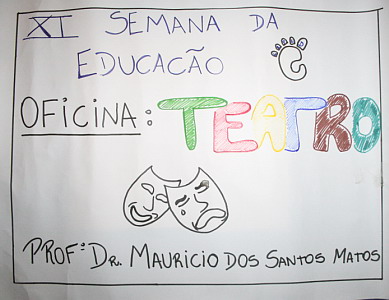 XI SEMANA DA
EDUCAÇÃO
OFICINA: TEATRO
PROFº DR. MAURICIO DOS SANTOS MATOS